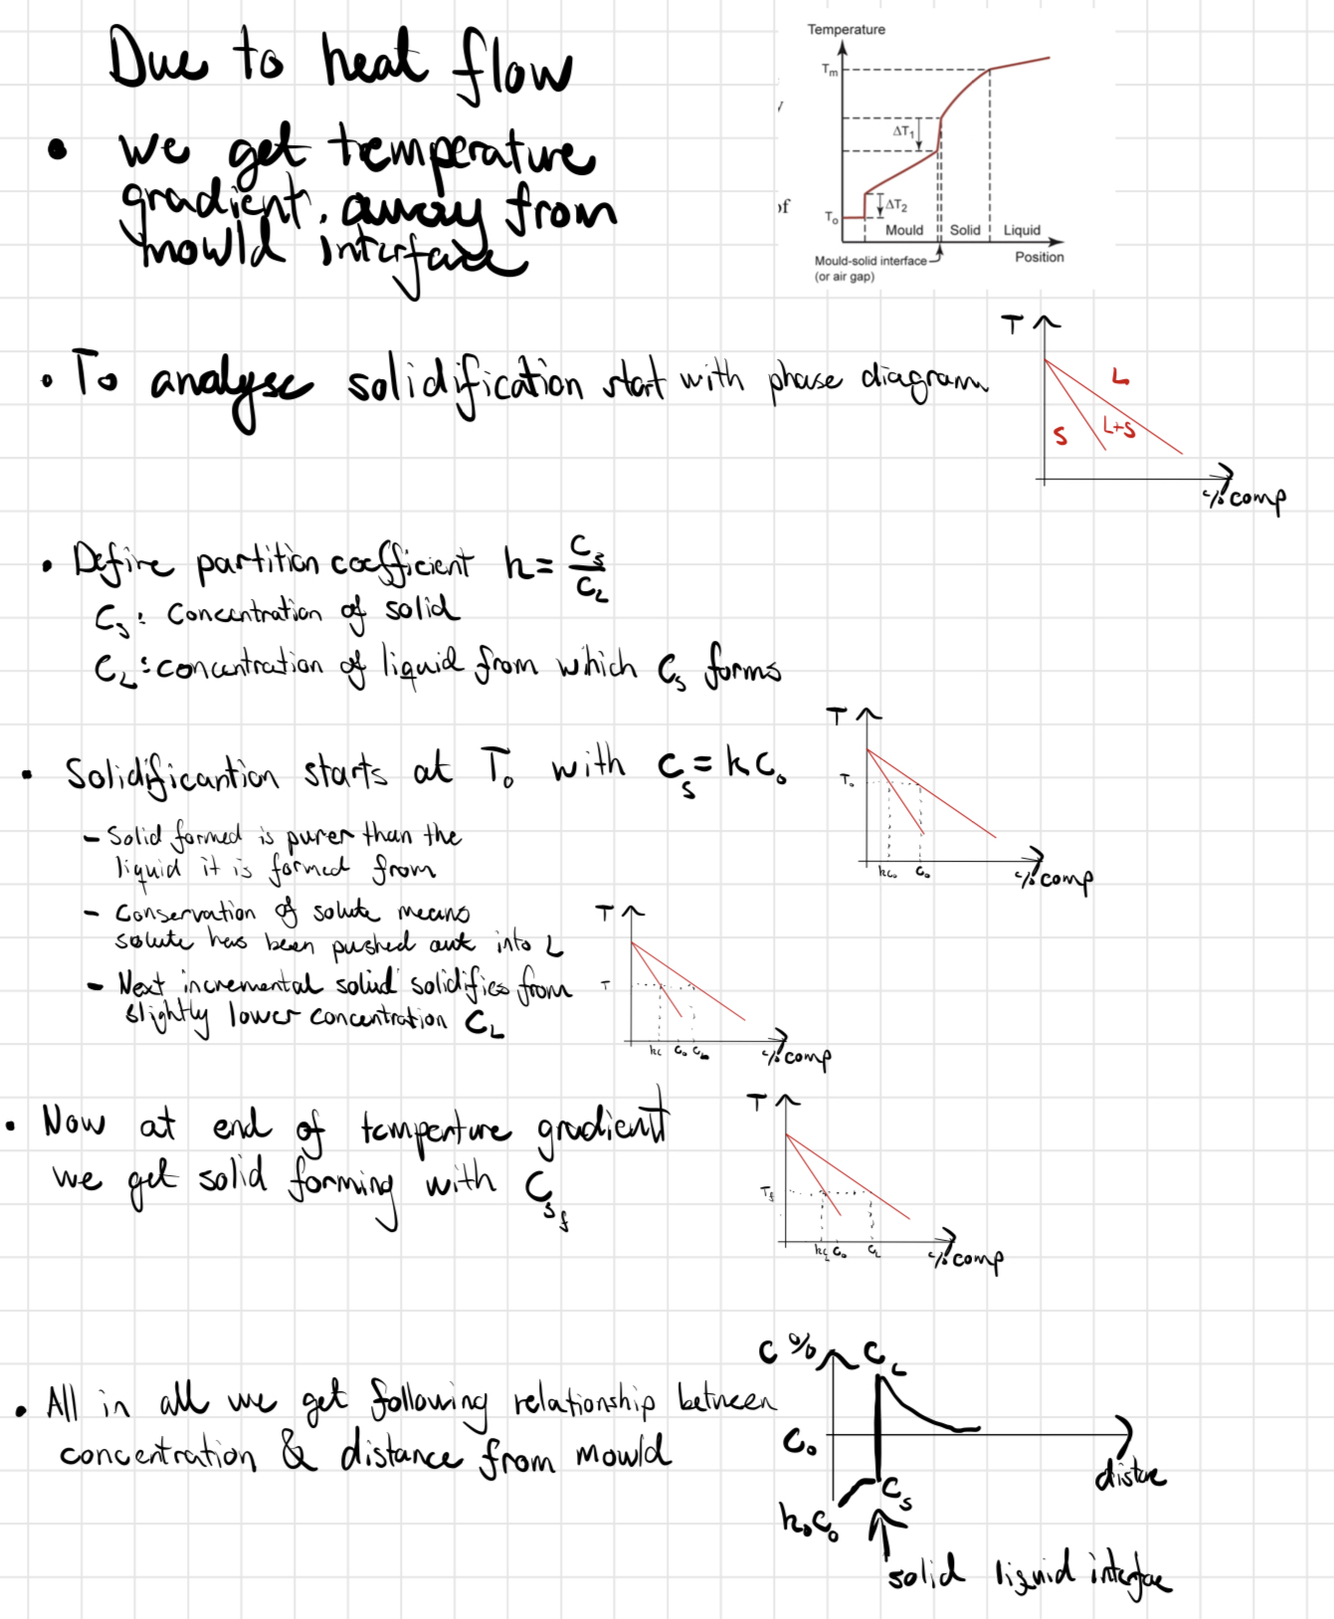 Due to heat flow
• we get temperature
gradient. away from
mowld interface
Temperature
Tm
ΔT1
ΔT2
To
Mould
Solid
Liquid
Position
Mould-solid interface
(or air gap)
of
• To analyse solidification start with phase diagram
T
L
S
L+S
% comp
• Define partition coefficient k = Cs/CL
Cs: Concentration of solid
CL: concentration of liquid from which Cs forms
• Solidificantion starts at To with Cs = kCo
T
To
kCo Co
% comp
- Solid formed is purer than the
liquid it is formed from
- Conservation of solute means
solute has been pushed out into L
- Next incremental solid solidifies from
slightly lower concentration CL
T
T
kC Co CL
% comp
• Now at end of temperture gradient
we get solid forming with Csf
T
Tf
kCL Co CL
% comp
• All in all we get following relationship between
concentration & distance from mowld
C %
CL
Co
distance
Cs
koCo
solid liquid interface